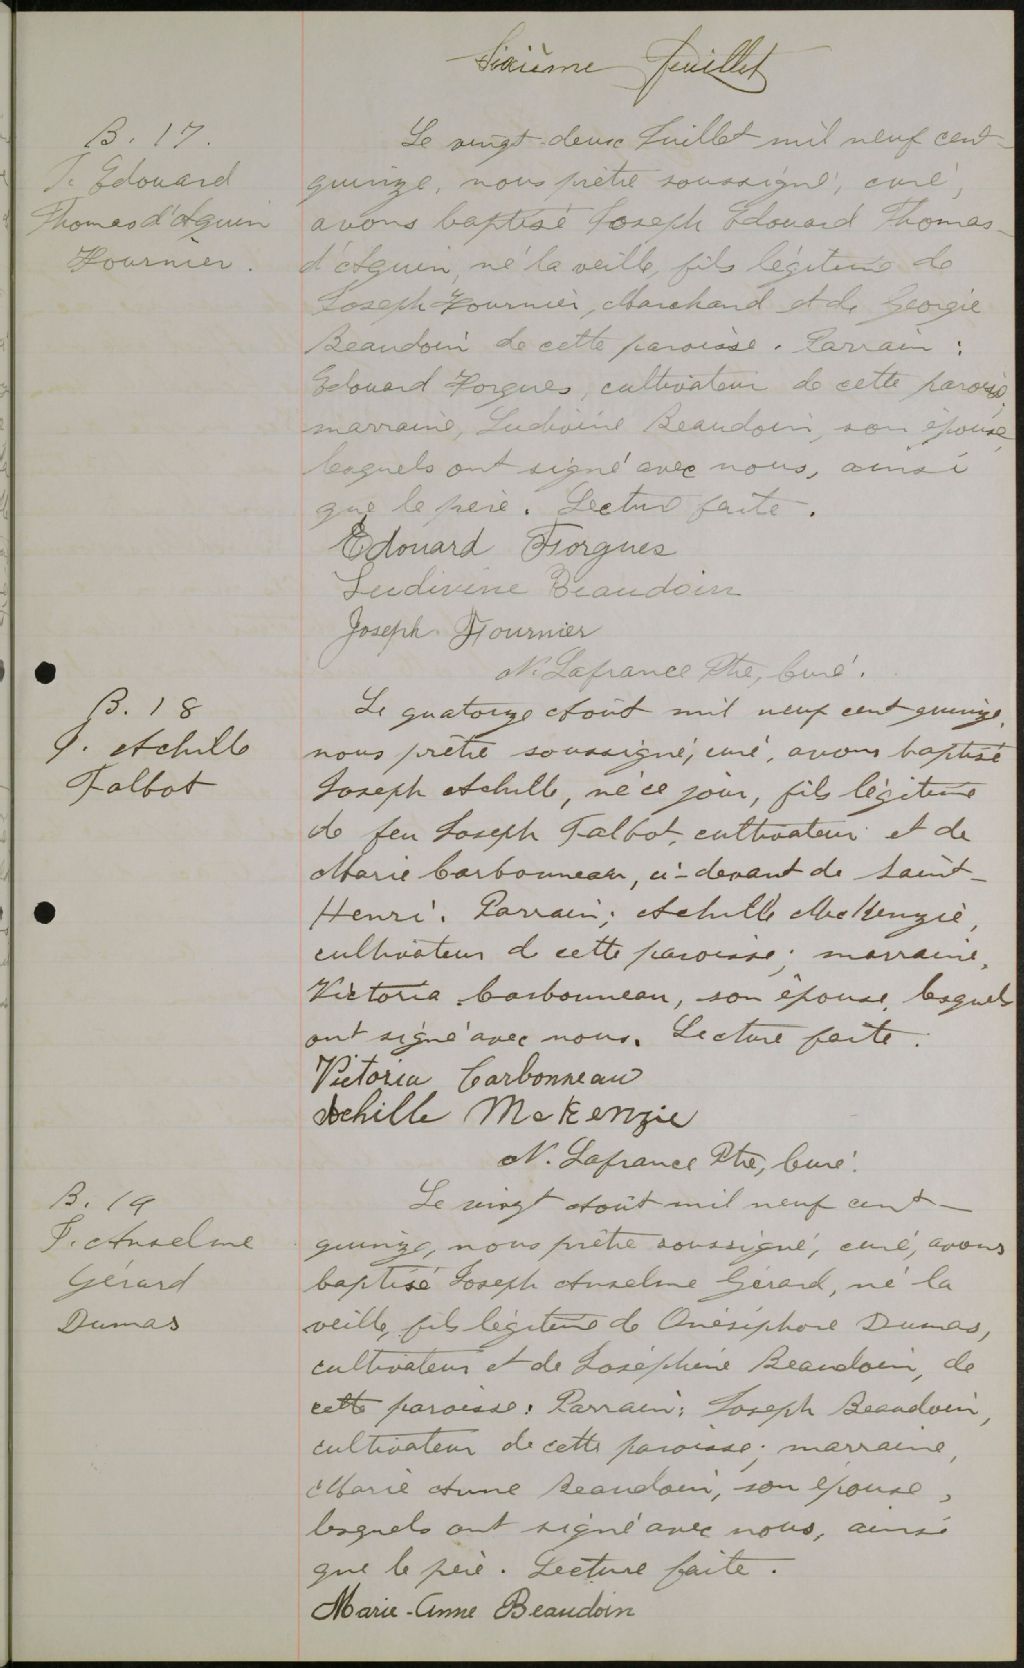 Sixième Feuillet
B. 17.
J. Edouard
Thomas d'Aquin
Fournier.
Le vingt-deux Juillet mil neuf cent-
quinze, nous prêtre soussigné, curé,
avons baptisé Joseph Edouard Thomas-
d'Aquin, né la veille, fils légitime de
Joseph Fournier, Marchand et de Georgie
Beaudoin de cette paroisse. Parrain :
Edouard Forgues, cultivateur de cette paroisse,
marraine, Ludivine Beaudoin, son épouse,
lesquels ont signé avec nous, ainsi
que le père. Lecture faite.
Edouard Forgues
Ludivine Beaudoin
Joseph Fournier
N. Lafrance Ptre, Curé.
B. 18
J. Achille
Talbot
Le quatorze Août mil neuf cent quinze,
nous prêtre soussigné, curé, avons baptisé
Joseph Achille, né ce jour, fils légitime
de feu Joseph Talbot, cultivateur et de
Marie Carbonneau, ci-devant de Saint-
Henri. Parrain; Achille McKenzie,
cultivateur de cette paroisse; marraine,
Victoria Carbonneau, son épouse, lesquels
ont signé avec nous. Lecture faite.
Victoria Carbonneau
Achille McKenzie
N. Lafrance Ptre, Curé.
B. 19
J. Anselme
Gérard
Dumas
Le vingt Août mil neuf cent-
quinze, nous prêtre soussigné, curé, avons
baptisé Joseph Anselme Gérard, né la
veille, fils légitime de Onésiphore Dumas,
cultivateur et de Joséphine Beaudoin, de
cette paroisse: Parrain: Joseph Beaudoin,
cultivateur de cette paroisse; marraine,
Marie Anne Beaudoin, son épouse,
lesquels ont signé avec nous, ainsi
que le père. Lecture faite.
Marie-Anne Beaudoin